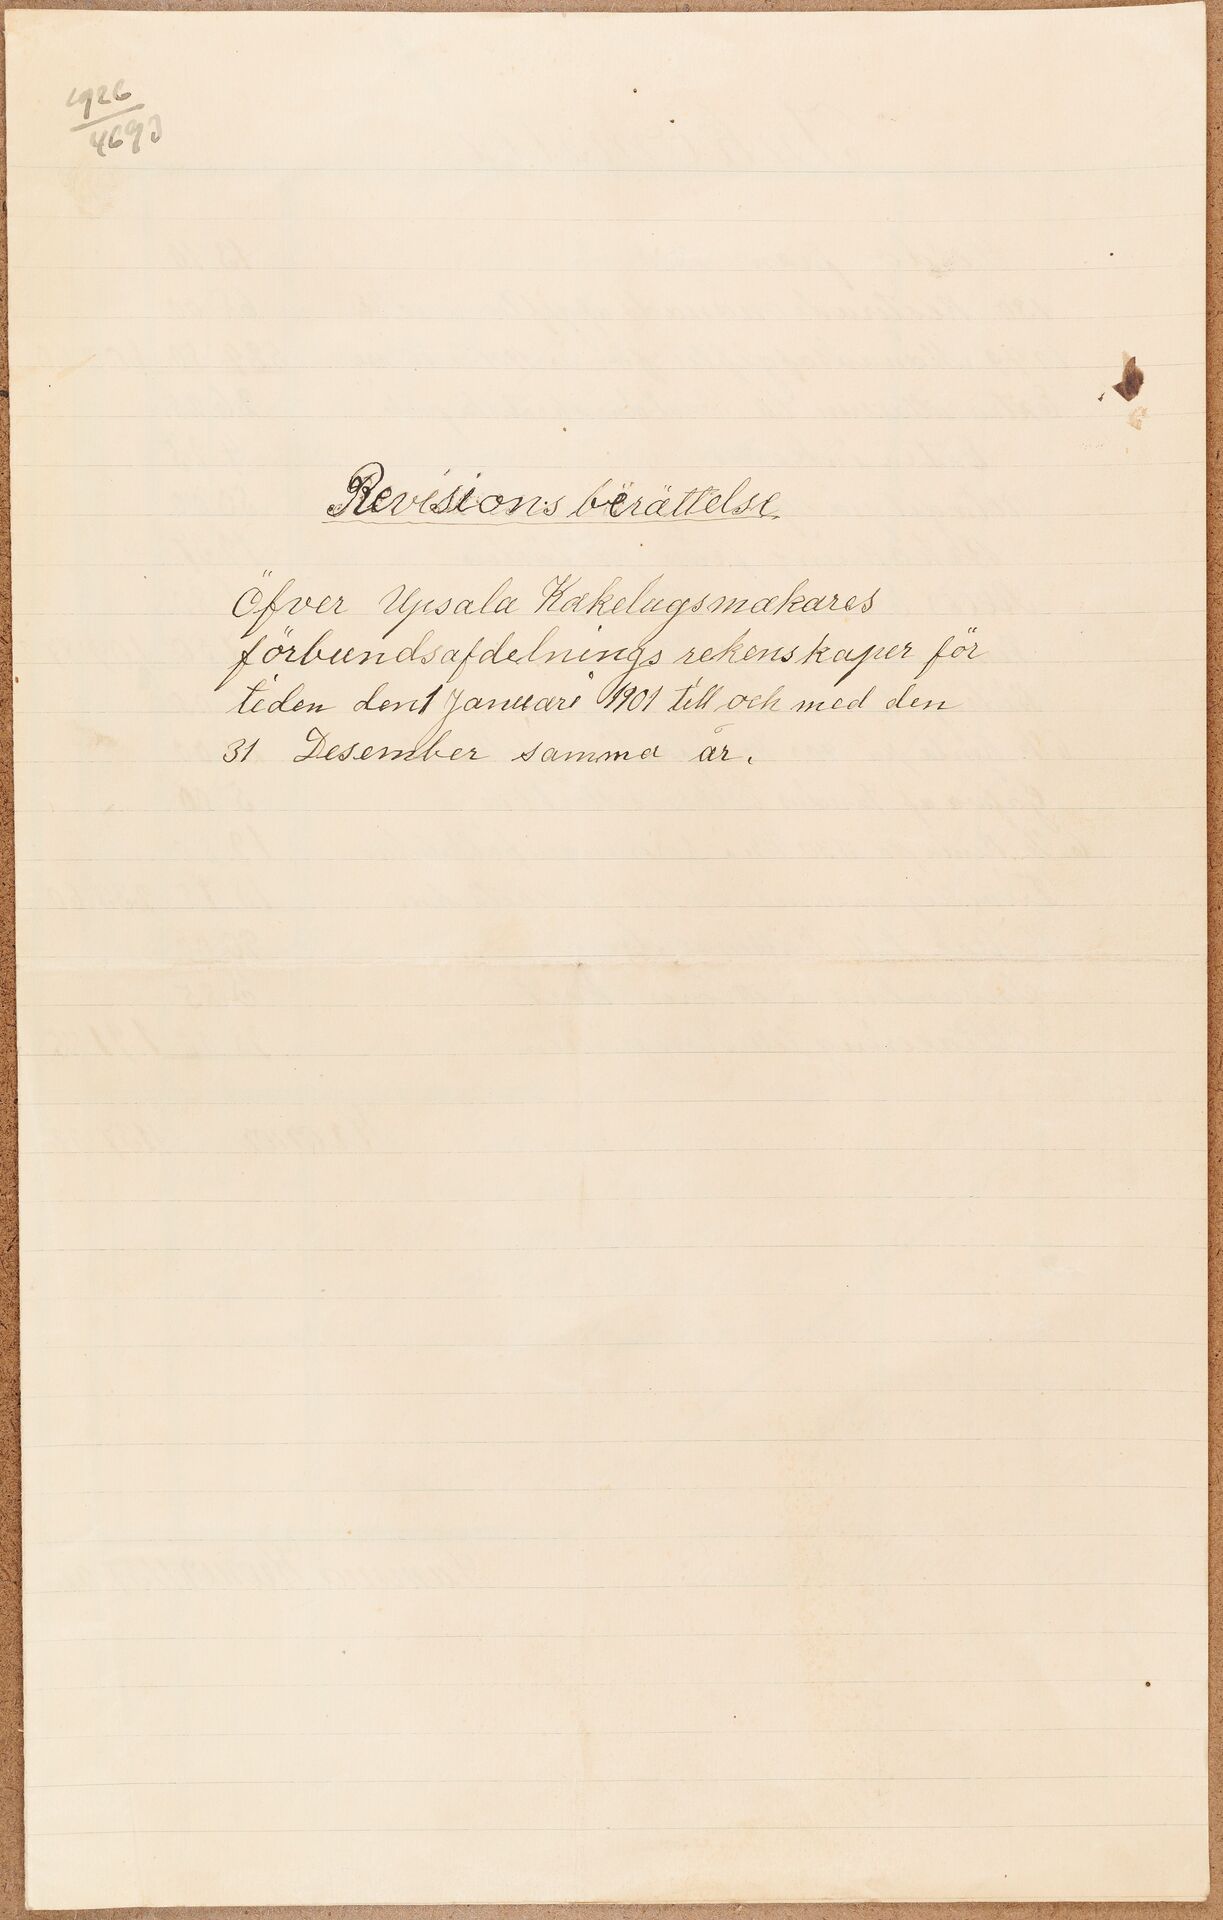 1926
4693
Revisions berättelse.
Öfver Upsala Kakelugsmakares
förbundsafdelnings rekenskaper för
tiden den 1 Januari 1901 till och med den
31 Desember samma år.